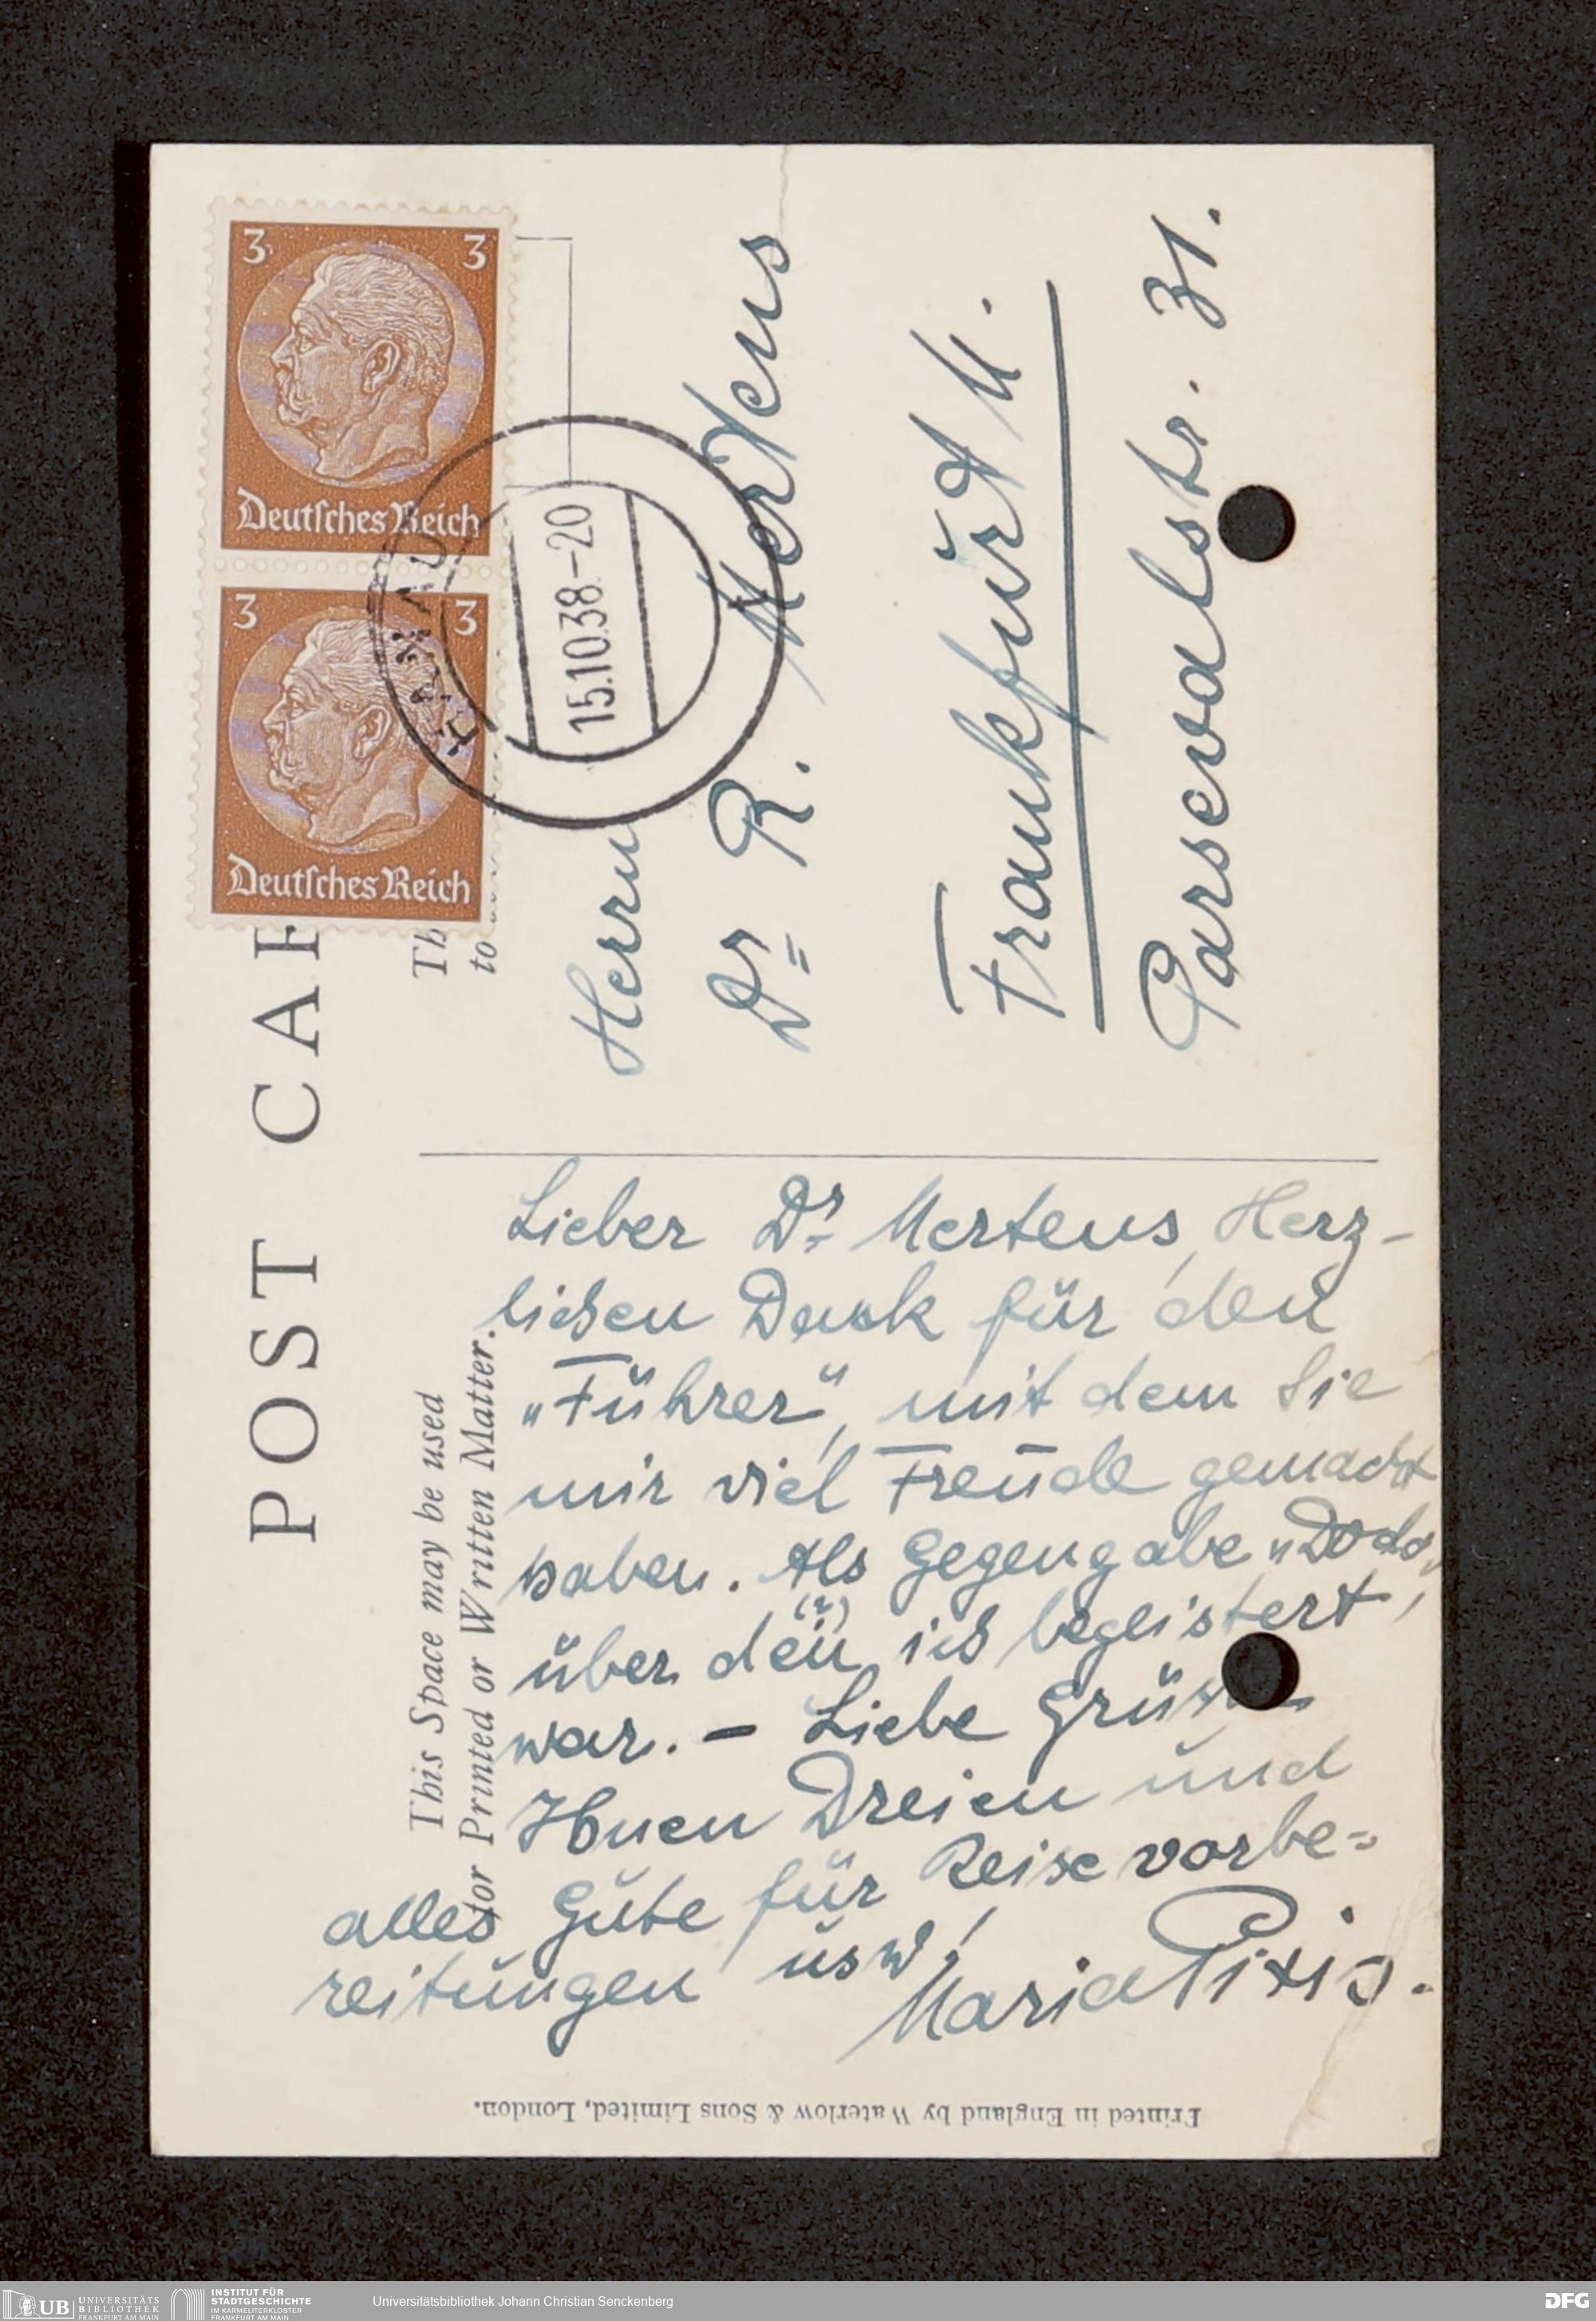 POST CAR
This Space may be used
for Printed or Written Matter.
Th
to
3 3
Deutsches Reich
3 3
Deutsches Reich
HANAU
15.10.38.-20
Herrn
Dr R. Mertens
Frankfurt M.
Parsevalstr. 31.
Lieber Dr Mertens, Herz-
lichen Dank für den
„Führer", mit dem Sie
mir viel Freude gemacht
haben. Als Gegengabe „Dodo",
über den (?) ich begeistert
war. – Liebe Grüsse
Ihnen Dreien und
alles Gute für Reisevorbe-
reitungen usw!
Maria Pixis.
Printed in England by Waterlow & Sons Limited, London.
UB UNIVERSITÄTS
BIBLIOTHEK
FRANKFURT AM MAIN
INSTITUT FÜR
STADTGESCHICHTE
IM KARMELITERKLOSTER
FRANKFURT AM MAIN
Universitätsbibliothek Johann Christian Senckenberg
DFG